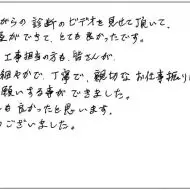 がらの診断のビデオを見せて頂いて、
ができて、とても良かったです。
工事担当の方も、皆さんが、
細やかで、丁寧で、親切なお仕事振り
願いする事ができました。
も良かったと思います。
ございました。